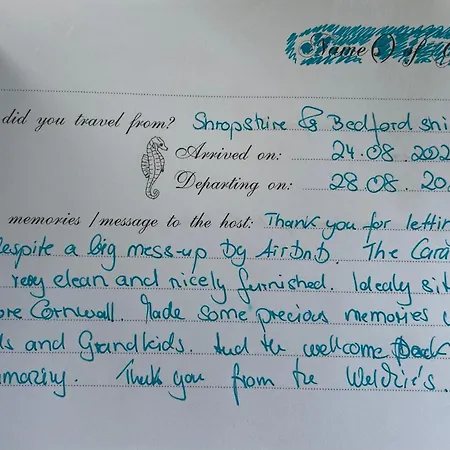 Name(s) of
did you travel from? Shropshire & Bedfordshi
Arrived on: 24.08.202
Departing on: 28.08.20
memories/message to the host: Thank you for lettin
espite a big mess-up by AirBnB. The Cara
very clean and nicely furnished. Idealy sit
ore Cornwall. Made some precious memories w
ds and Grandkids. And the wellcome Pack
amazing. Thank you from the